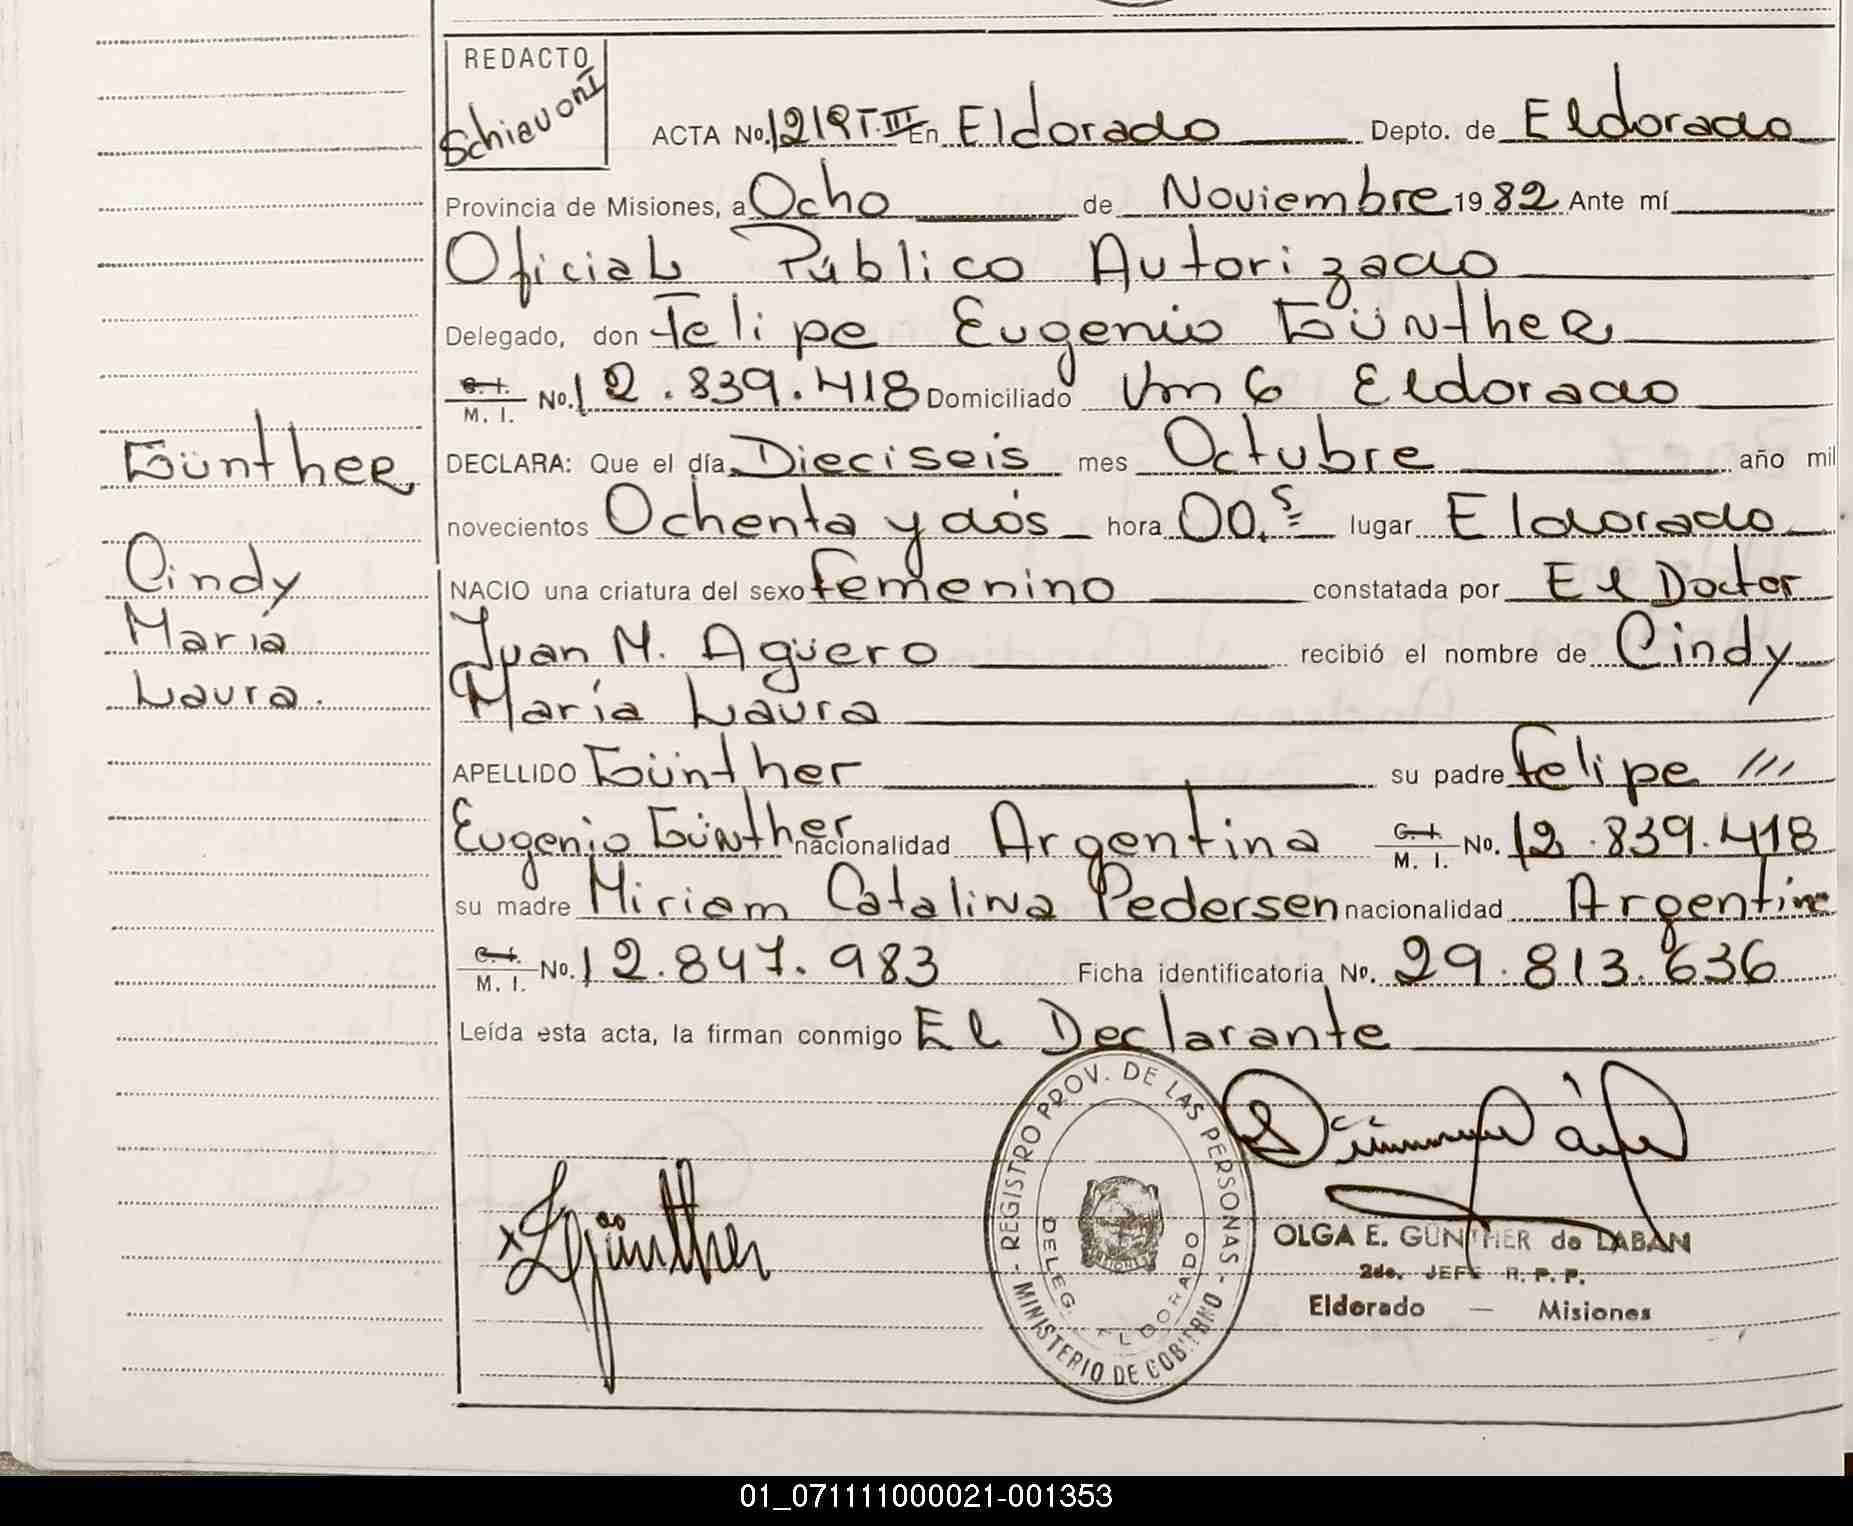 REDACTO
Schiavoni
ACTA No. 1219 T. III En Eldorado Depto. de Eldorado
Provincia de Misiones, a Ocho de Noviembre 1982 Ante mí
Oficial Público Autorizado
Delegado, don Felipe Eugenio GÜNTHER
C. I. M. I. No. 12.839.418 Domiciliado Km 6 Eldorado
Günther
DECLARA: Que el día Dieciseis mes Octubre año mil
novecientos Ochenta y dós hora 00.s lugar Eldorado
Cindy
NACIO una criatura del sexo femenino constatada por El Doctor
María
Juan M. Agüero recibió el nombre de Cindy
Laura.
María Laura
APELLIDO Günther su padre Felipe ///
Eugenio Günther nacionalidad Argentina C. I. M. I. No. 12.839.418
su madre Miriam Catalina Pedersen nacionalidad Argentina
C. I. M. I. No. 12.847.983 Ficha identificatoria No. 29.813.636
Leída esta acta, la firman conmigo El Declarante
REGISTRO PROV. DE LAS PERSONAS - MINISTERIO DE GOBIERNO -
DELEG. ELDORADO
MISIONES
x Günther
OLGA E. GÜNTHER de LABAN
2do. JEFE R. P. P.
Eldorado — Misiones
01_071111000021-001353